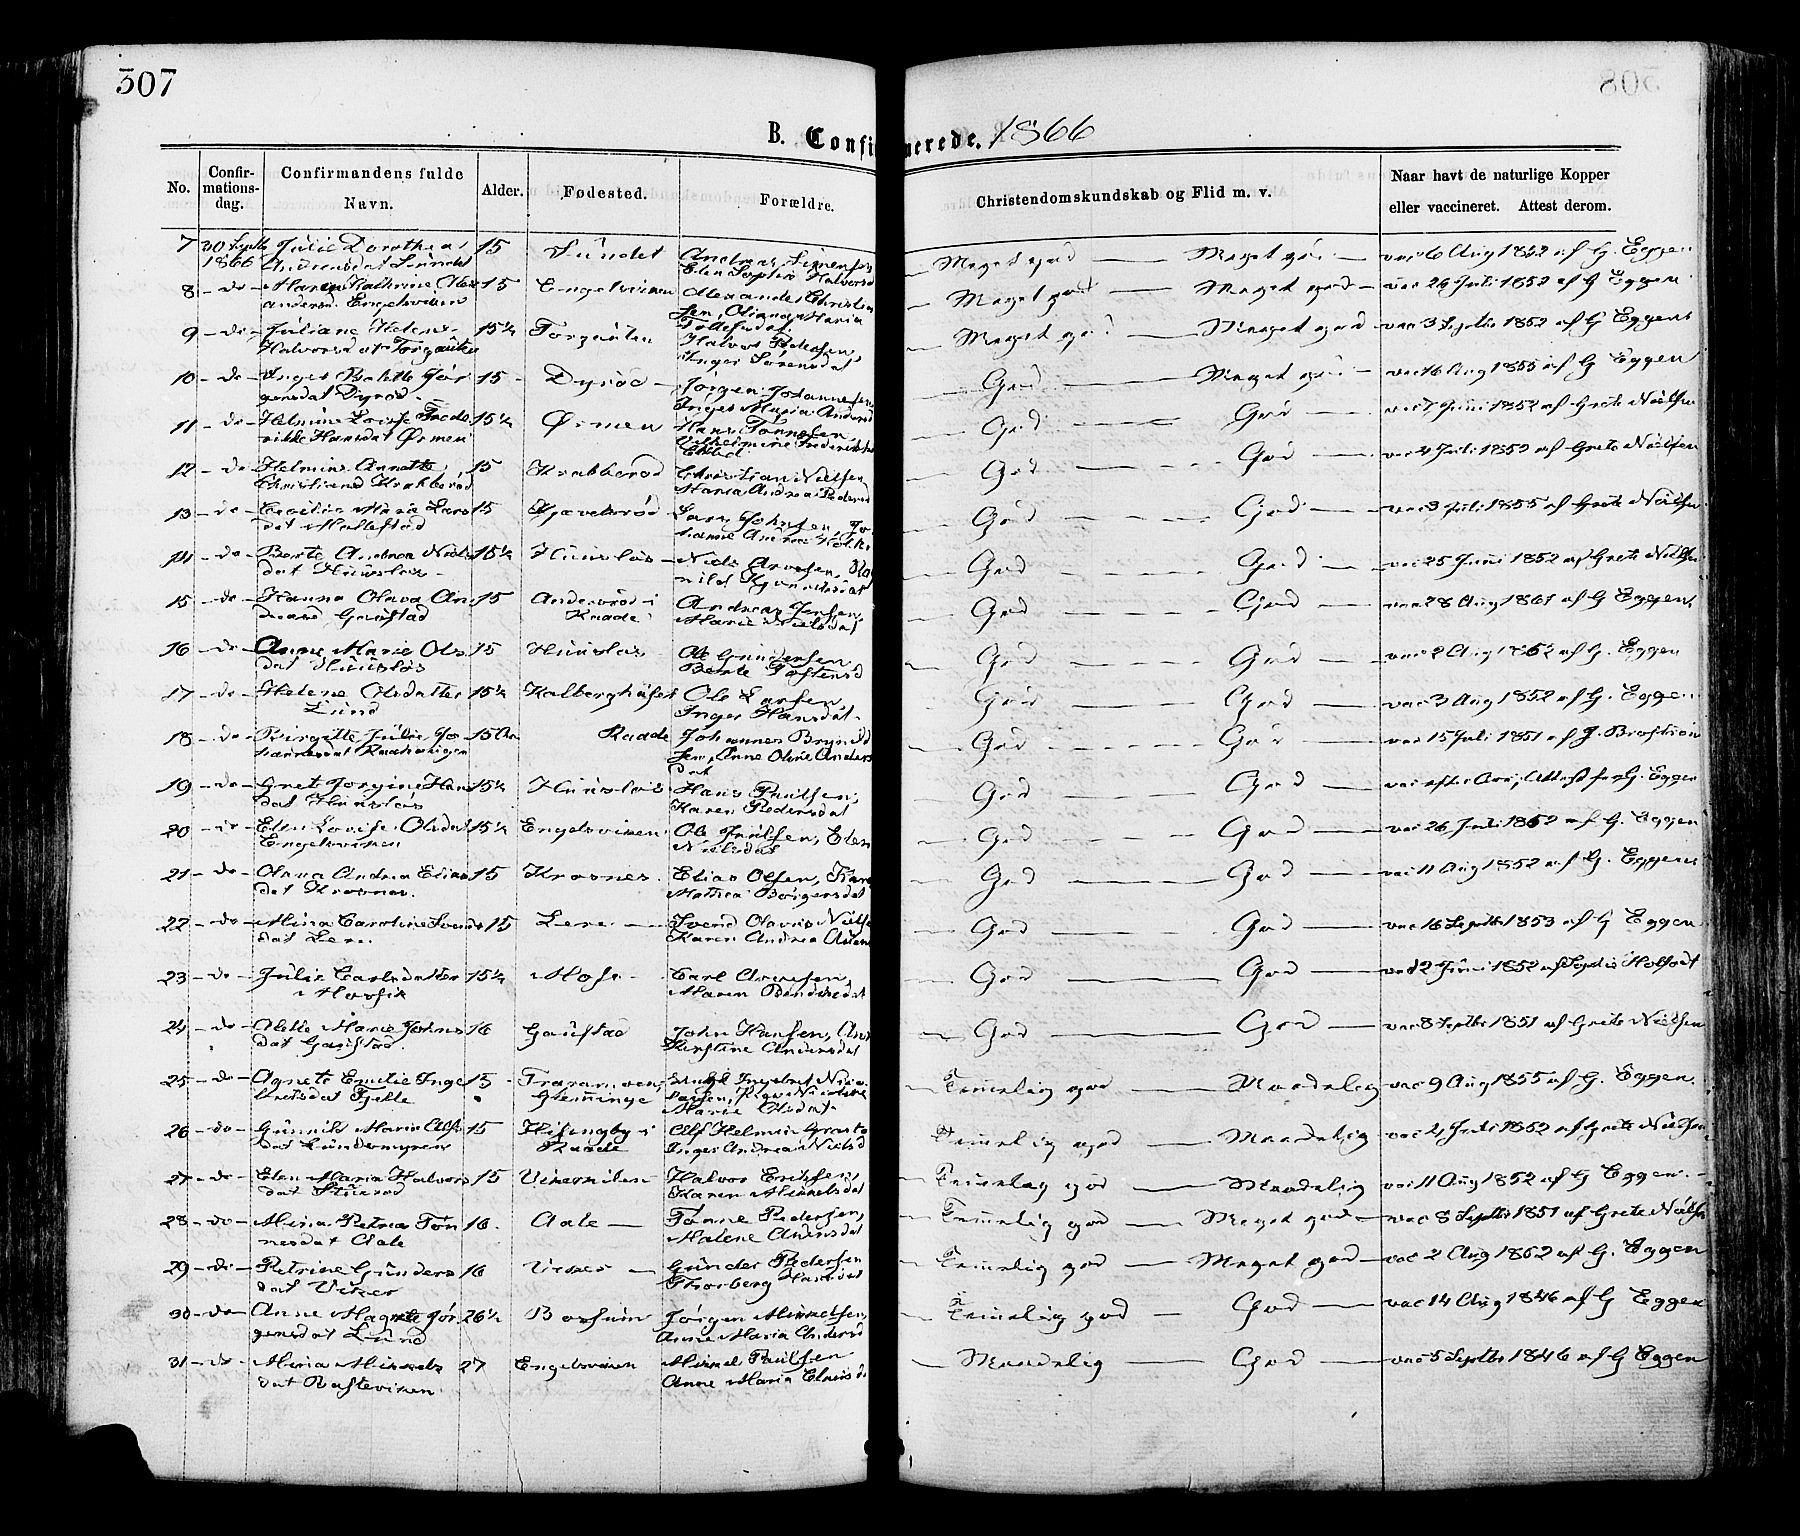 307
B. Confirmerede. 1866
No. Confirmationsdag. Confirmandens fulde Navn. Alder. Fødested. Forældre. Christendomskundskab og Flid m. v. Naar havt de naturlige Kopper eller vaccineret. Attest derom.
7 30 Septb 1866 Julie Dorothea 15 Sundet Andreas Meget god Meget god vac 6 Aug 1852 af G. Eggen
Andreasdat Sundet Elen Sophie Halvorsd
8 - do - Maren Kathrine Alex 15 Engelsviken Alexander Christian Meget god Meget god vac 26 Juli 1852 af G Eggen
andersd. Engelsviken sen, Maria
9 - do - Juliane Helene 15½ Torgauten Halvor Pedersen, Meget god Meget god vac 3 Septbr 1852 af G Eggen
Halvorsdat Torgauten Inger Sørensdat
10 - do - Inger Bolette Jør 15 Dyrød Jørgen Johannesen God Meget god vac 16 Aug 1855 af G Eggen
gensdat Dyrød Inger Maria Andersd
11 - do - Helmine Lovise Frede 15½ Ørmen Hans Tønnesen, God God vac 7 Juni 1852 af Grete Nielsen
rikke Hansdat Ørmen Vilhelmine
12 - do - Helmine Annette 15 Krabberød Christian Nielsen God God vac 4 Juli 1852 af Grete Nielsen
Christiansd Krabberød Maria Andrea Pedersd
13 - do Cecilie Maria Lars 15 Lars Johnsen, Jo God God vac 3 Juli 1855 af Grete Nielsen
dat hanne Andrea
14 - do - Berte Andrea Niels 15½ Huuslos Niels Arvesen, God God vac 25 Juni 1852 af Grete Nielsen
dat Huuslos
15 - do - Hanna Olava An 15 Anderød i Andreas Jensen God God vac 28 Aug 1861 af G Eggen
dreasd Gaustad Raade Marie Nielsdat
16 - do Anne Marie Ols 15 Huuslos Ole Gundersen God God vac 2 Aug 1852 af G. Eggen
dat Huuslos Berte Torstensd
17 - do Helene Olsdatter 15½ Kalberghuset Ole Larsen, God God vac 3 Aug 1852 af G. Eggen
Lund Inger Hansdat
18 - do Birgitte Julie Jo 15 Raade Johannes Brynild God God vac 15 Juli 1851 af J.
sen, Anne Oline Anders
dat
19 - do Gret Jorgine Hans 15½ Huuslos Hans Paulsen, God God G. Eggen
dat Huuslos Karen Pedersdat
20 - do Elen Lovise Olsdat 15½ Engelsviken Ole Paulsen, Elen God God vac 26 Juli 1852 af G. Eggen
Engelsviken Nielsdat
21 - do Anna Andrea Elias 15 Krosnes Elias Olsen, God God vac 11 Aug 1852 af G. Eggen
dat Krosnes Mathea Børgersdat
22 - do - Mina Caroline Svends 15 Lere Svend Olavus Nielse God God vac 16 Septbr 1853 af G Eggen
dat Lere Karen Andrea
23 - do - Julie Carlsdatter 15½ Mose Carl God God vac 2 Juni 1852 af
Maren
24 - do - Olette Marie Johns 16 Gaustad John Hansen, God God vac 8 Septbr 1851 af Grete Nielsen
dat Gaustad Kirstine Andersdat
25 - do - Agnete Emilie Inge 15 Glemminge Temmelig god Maadelig vac 9 Aug 1855 af G. Eggen
bretsdat Marie Olsdat
26 - do Gunnild Maria 15 i Temmelig god Maadelig vac 2, Juli 1852 af Grete Nielsen
dat Raade Inger Andrea Nielsd
27 - do - Elen Maria Halvors 15 Halvor Eriksen, Temmelig god Maadelig vac 11 Aug 1852 af G Eggen
dat Karen Mikkelsdat
28 - do Mina Petrea Tøn 16 Aale Tønne Pedersen, Temmelig god Meget god vac 8 Septbr 1851 af Grete Nielsen
nesdat Aale Malene
29 - do - Petrine Gunders 16 Viker Gunder Pedersen Temmelig god Meget god vac 2 Aug 1852 af G. Eggen
dat Viker Thorberg Hansdat
30 - do Anne Magrete Jør 26½ Borhuus Jørgen Mikkelsen, Temmelig god God vac 14 Aug 1846 af G Eggen
gensdat Lund Anne Maria Andersd
31 - do - Maria Mikkels 27 Engelsviken Mikkel Paulsen Maadelig God vac 5 Septbr 1846 af G Eggen
dat Rosteviken Anne Maria